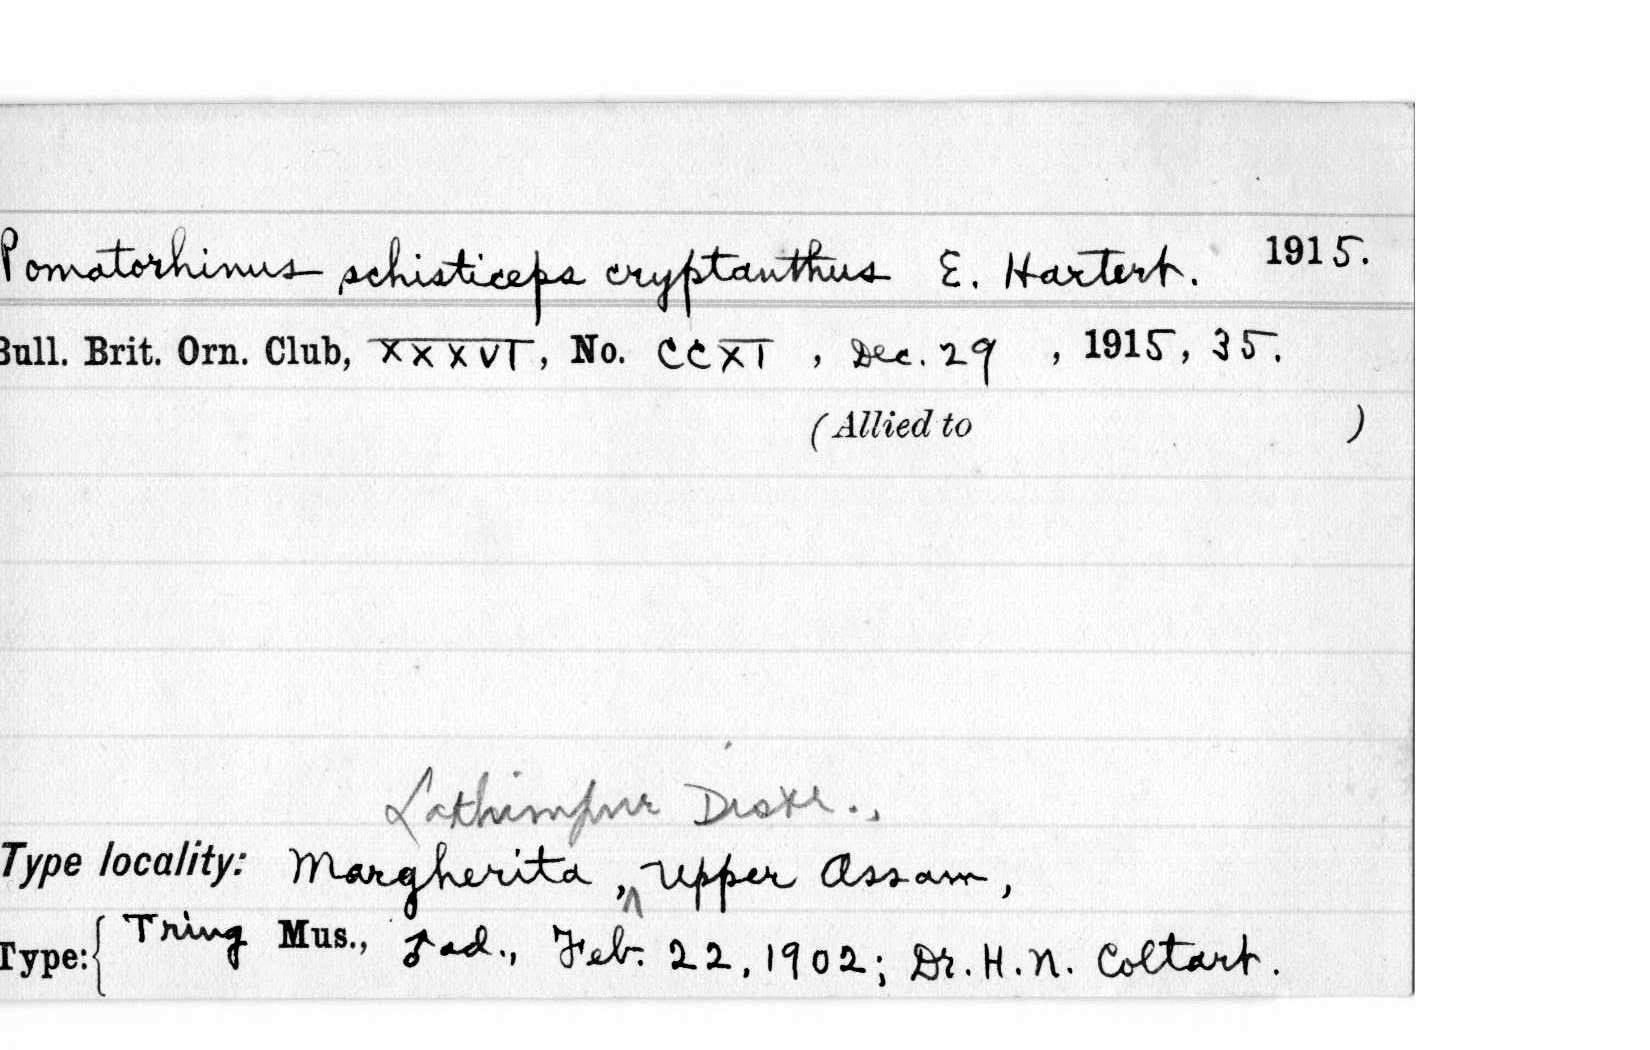 Pomatorhinus schisticeps cryptanthus E. Hartert. 1915.
Bull. Brit. Orn. Club, XXXVI, No. CCXI , Dec. 29 , 1915, 35.
(Allied to )
Lakhimpur Distr.,
Type locality: Margherita , ^ Upper Assam,
Type: { Tring Mus., ♂ ad., Feb. 22, 1902; Dr. H. N. Coltart.